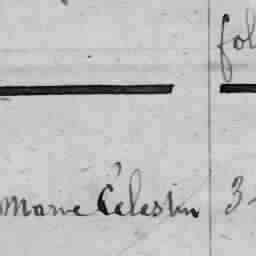 fol
Marie Célestin 3-